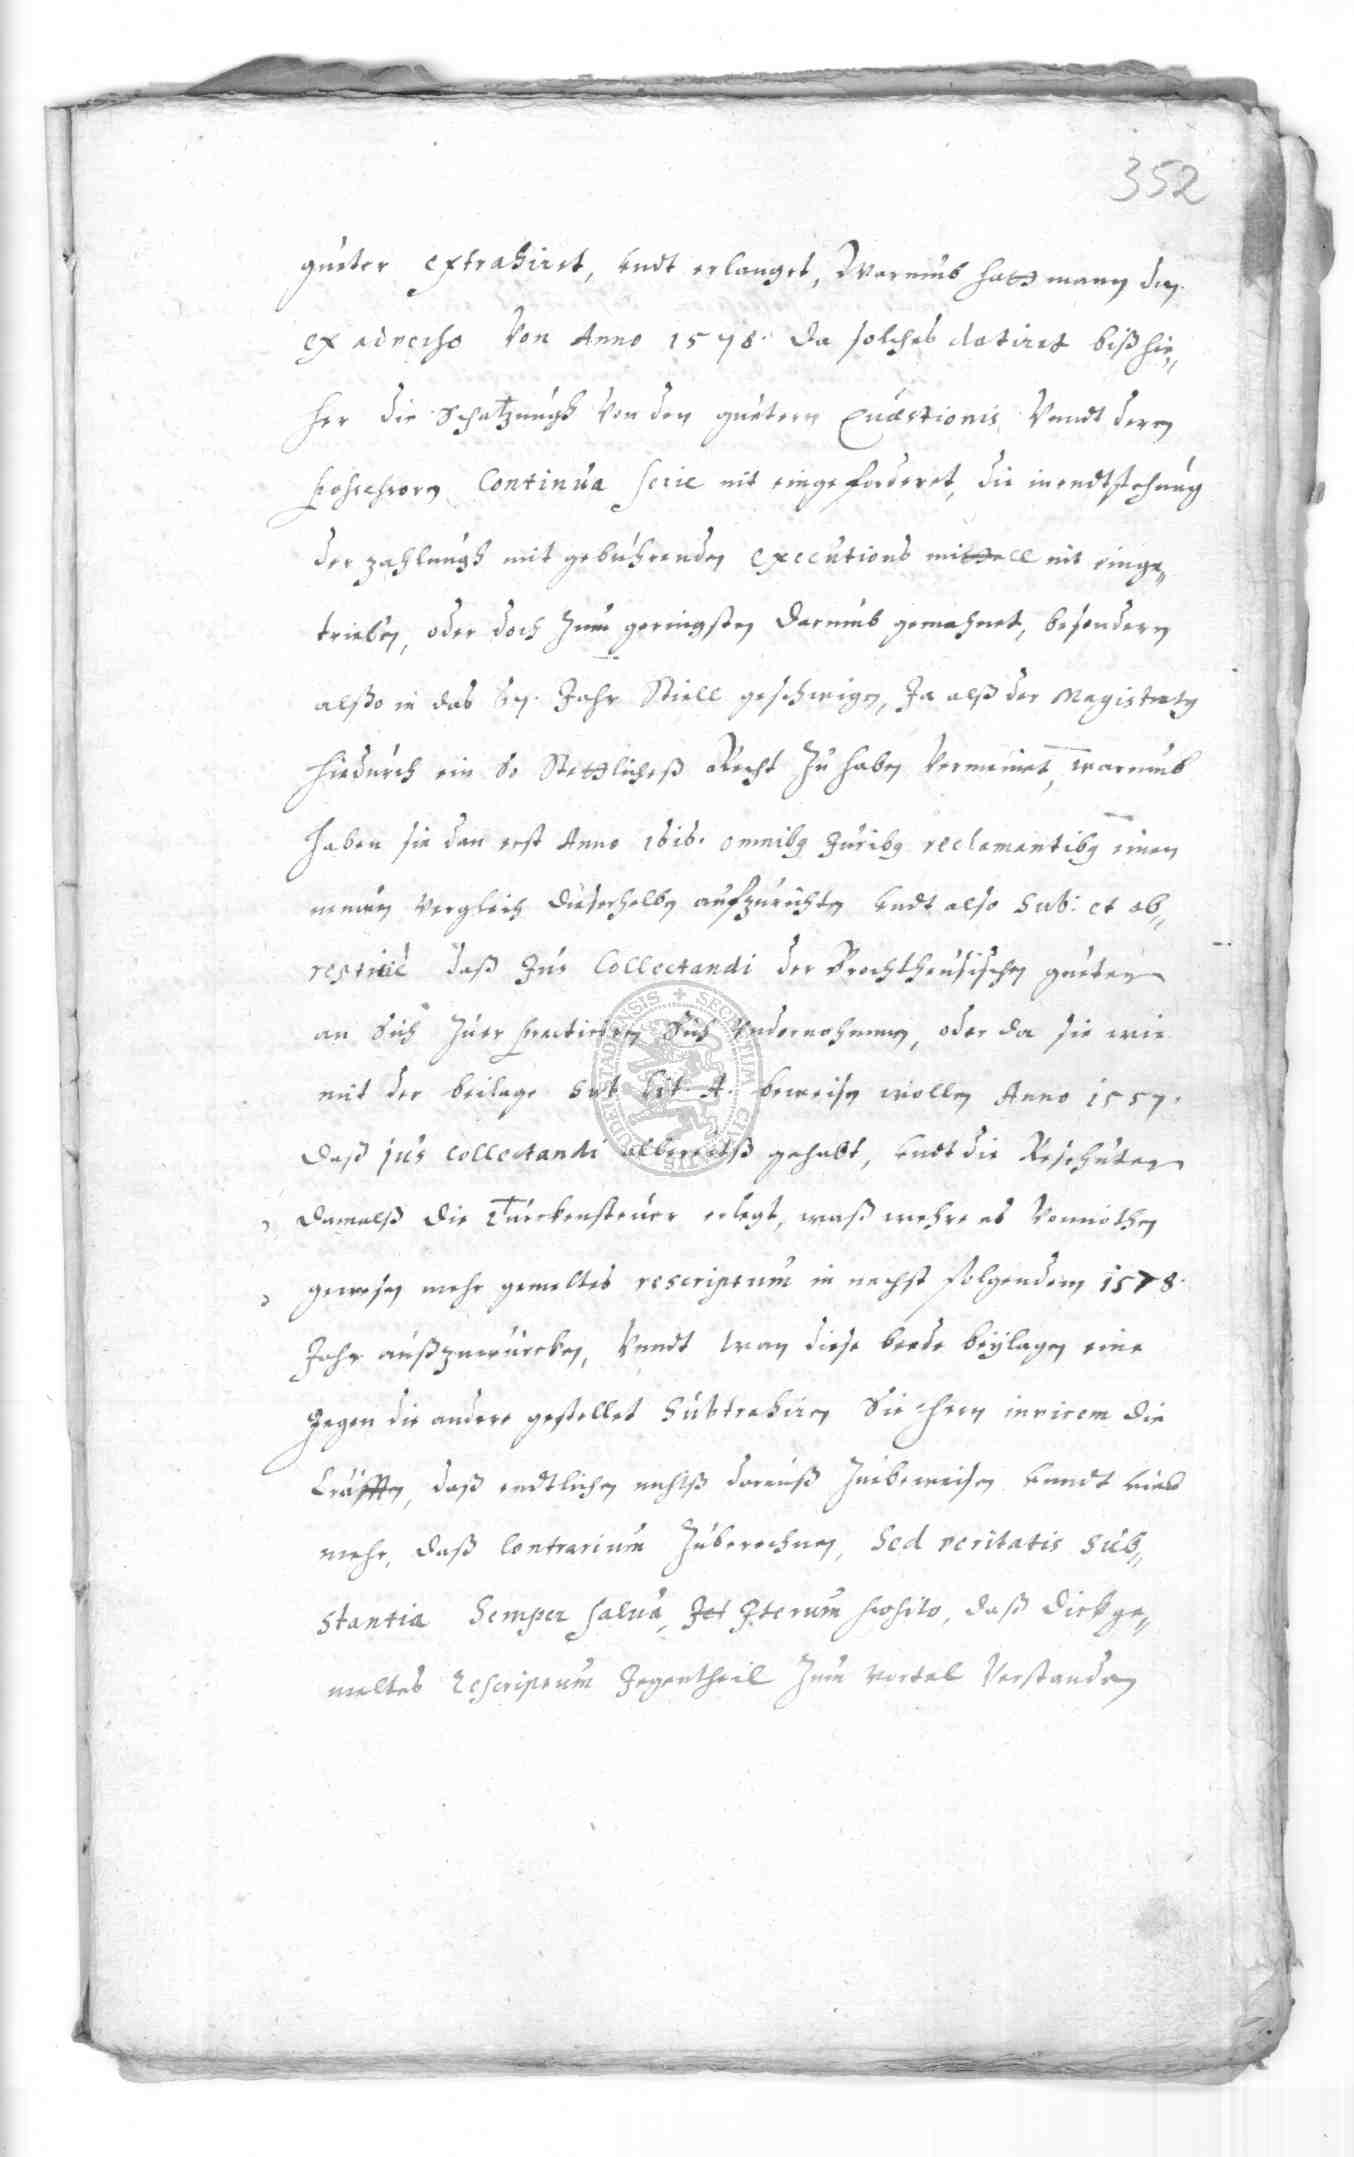 352
güeter extrahiret, undt erlanget, Warumb hatt mann den
ex adverso Von Anno 1578. da solches datiret biß hie„
her die Schatzungh von den güetern Quæstionis Vnndt deren
possessorn Continua serie nit eingefordert, die in endtstehung
der zahlungh mit gebührenden executions mittell nit einge„
trieben, oder doch Zum geringsten darumb gemahnet, besondern
alßo in das Jahr Still geschwigen, Ja alß der Magistratg
hiedurch ein So Stattliches Recht Zu haben Vermeinet, warumb
haben sie dan erst Anno 1616. omnibg Juribg reclamantibg einen
newen Vergleich dieserhalben aufzurichten undt also Sub: et ob„
reptitie daß Jus Collectandi der güetern
an Sich Zuer practiciren Sich undernohmmen, oder da sie wie
mit der beilage Sub Lit. A. beweisen wollen Anno 1557.
daß jus collectandi albereitß gehabt, undt die
damalß die Türckensteuer erlegt, waß wehre es Vonnöthen
gewesen mehr gemeltes rescriptum in nechst folgendem 1578.
Jahr außzuwürcken, Vnndt wan diese beede beylagen eine
gegen die andere gestellet Subtrahiren Sie Ihnen invicem die
Cräfften, daß endtlichen nichts darauß Zubeweisen unndt viel
mehr, daß Contrarium Zuberechnen, Sed veritatis Sub„
stantia Semper salva, Jterum posito, daß dickge„
meltes Rescriptum Jegentheil Zum Vortel Verstanden
SECRETUM CIVIUM